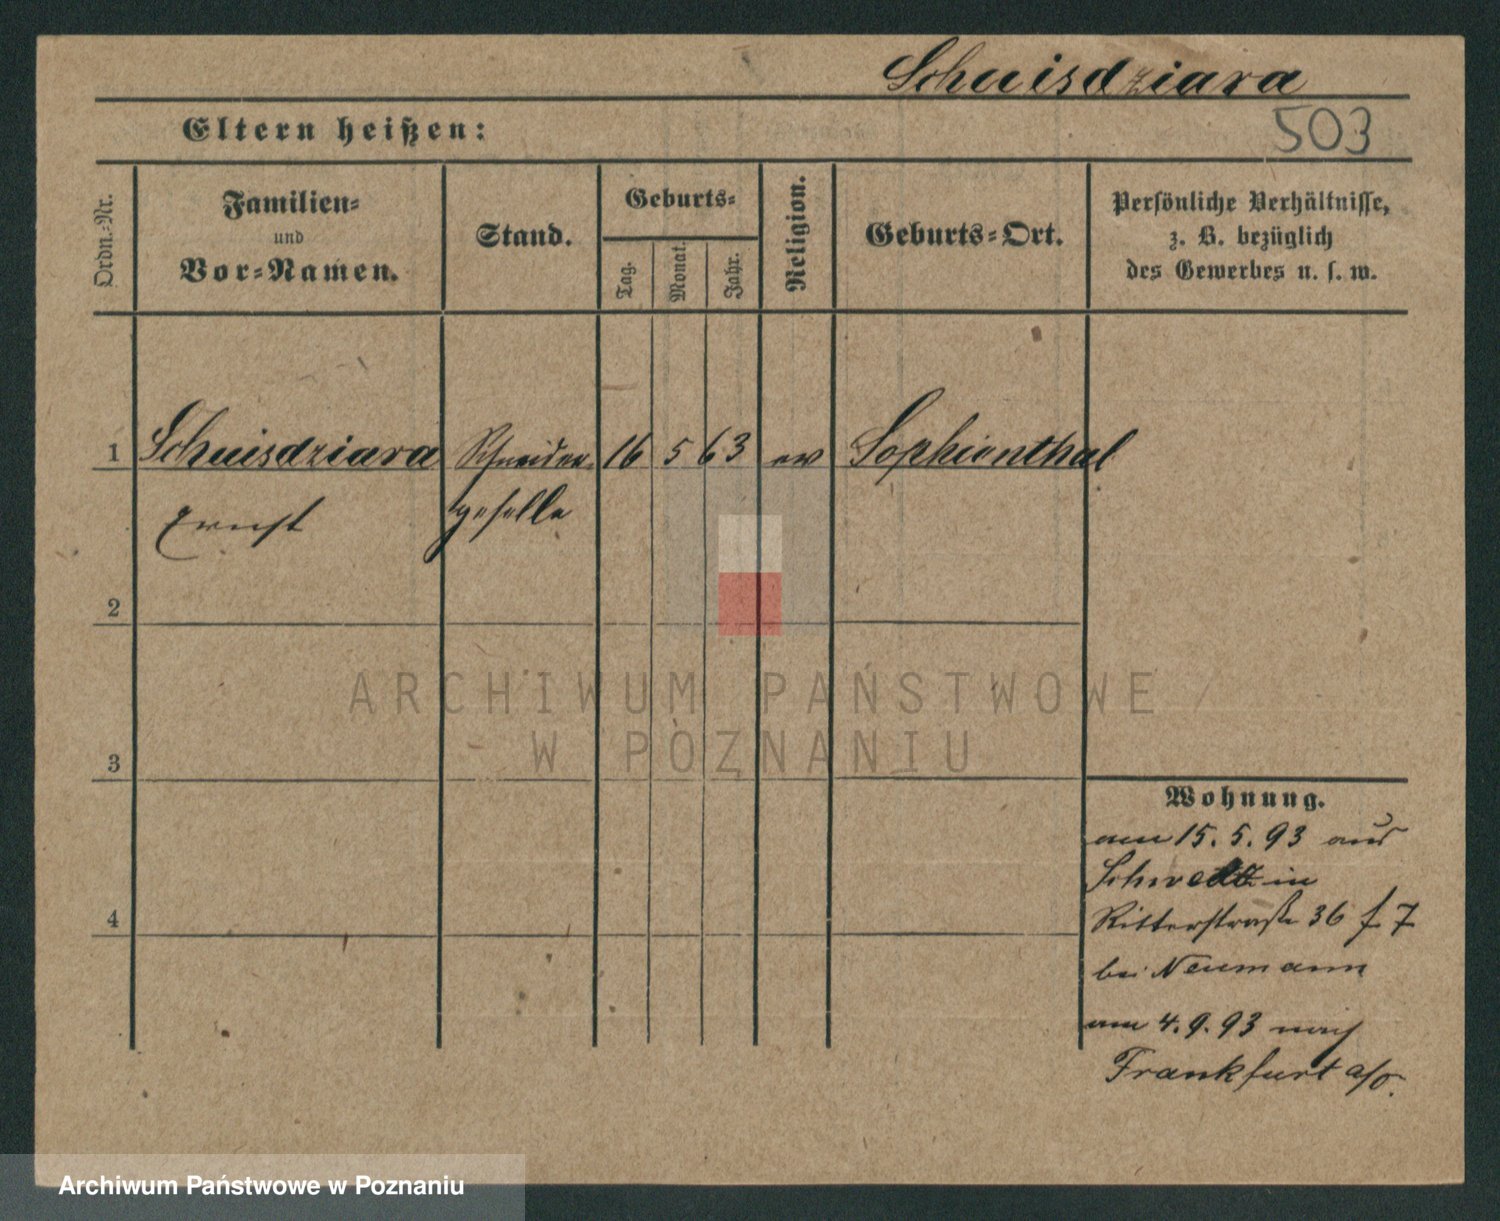 Schuisdziara
503
Eltern heißen:
Ordn.-Nr.
Familien-
und
Vor-Namen.
Stand.
Geburts-
Tag.
Monat.
Jahr.
Religion.
Geburts-Ort.
Persönliche Verhältnisse,
z. B. bezüglich
des Gewerbes u. s. w.
1 Schuisdziara Schneider- 16 5 63 ev Sophienthal
Ernst geselle
2
3
4
Wohnung.
am 15. 5. 93 aus
in
Ritterstraße 36 f. 7
bei Neumann
am 4. 9. 93 nach
Frankfurt a/o.
ARCHIWUM PAŃSTWOWE
W POZNANIU
Archiwum Państwowe w Poznaniu